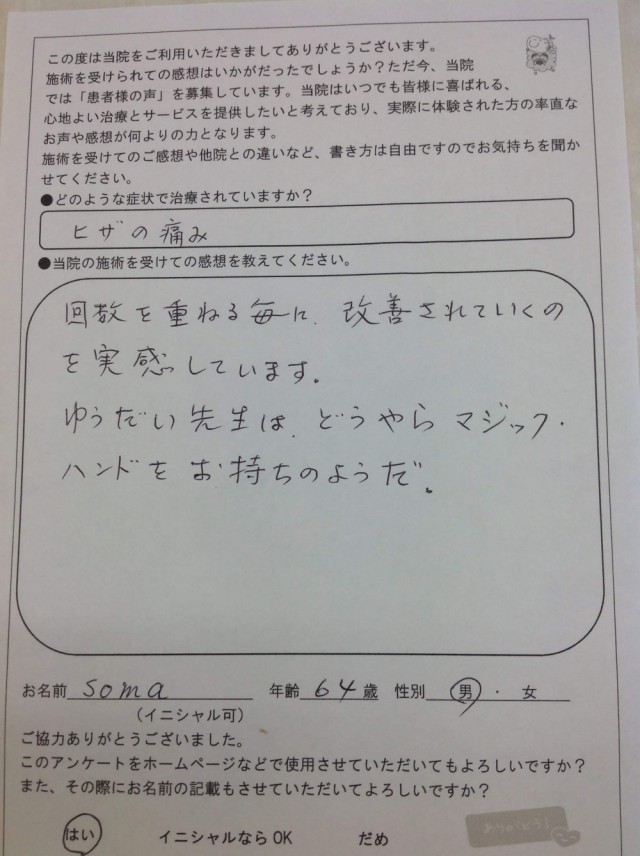 この度は当院をご利用いただきましてありがとうございます。
施術を受けられての感想はいかがだったでしょうか？ただ今、当院
では「患者様の声」を募集しています。当院はいつでも皆様に喜ばれる、
心地よい治療とサービスを提供したいと考えており、実際に体験された方の率直な
お声や感想が何よりの力となります。
施術を受けてのご感想や他院との違いなど、書き方は自由ですのでお気持ちを聞か
せてください。
●どのような症状で治療されていますか？
ヒザの痛み
●当院の施術を受けての感想を教えてください。
回数を重ねる毎に、改善されていくの
を実感しています。
ゆうだい先生は、どうやらマジック・
ハンドをお持ちのようだ。
お名前 soma 年齢 64 歳 性別 男 ・ 女
（イニシャル可）
ご協力ありがとうございました。
このアンケートをホームページなどで使用させていただいてもよろしいですか？
また、その際にお名前の記載もさせていただいてよろしいですか？
はい イニシャルなら OK だめ
ありがとう！